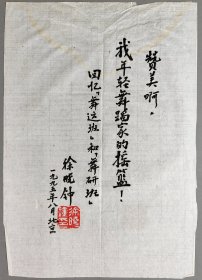 赞美啊，
我年轻舞蹈家的摇篮！
回忆“舞运班”和“舞研班”
徐晓钟
一九九五年八月北京